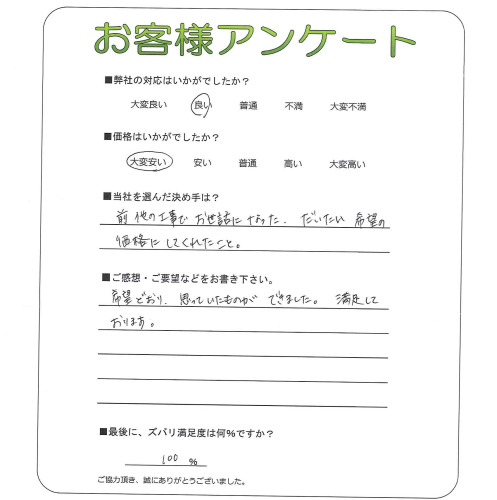 お客様アンケート
■弊社の対応はいかがでしたか？
大変良い 良い 普通 不満 大変不満
■価格はいかがでしたか？
大変安い 安い 普通 高い 大変高い
■当社を選んだ決め手は？
前他の工事で お世話になった. だいたい 希望の
価格に してくれたこと。
■ご感想・ご要望などをお書き下さい。
希望どおり、思っていたものが できました。 満足して
おります。
■最後に、ズバリ満足度は何%ですか？
100 %
ご協力頂き、誠にありがとうございました。